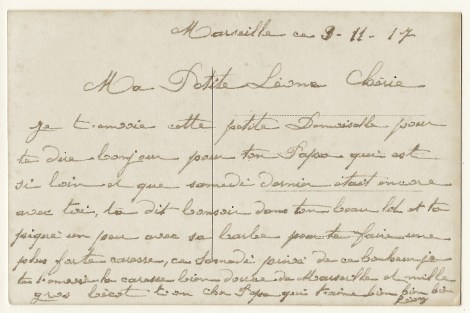 Marseille ce 9-11-17
Ma Petite Léone Chérie
Je t'envoie cette petite Demoiselle pour
te dire bonjour pour ton Papa qui est
si loin et que samedi dernier était encore
avec toi, ta dit bonsoir dans ton beau lit et ta
piqué un peu avec sa barbe pour te faire une
plus forte caresse, ce samedi privé de ce bonheur je
te l'envoie la caresse bien douce de Marseille et mille
gros bécot ton cher Papa qui t'aime bien bien bien